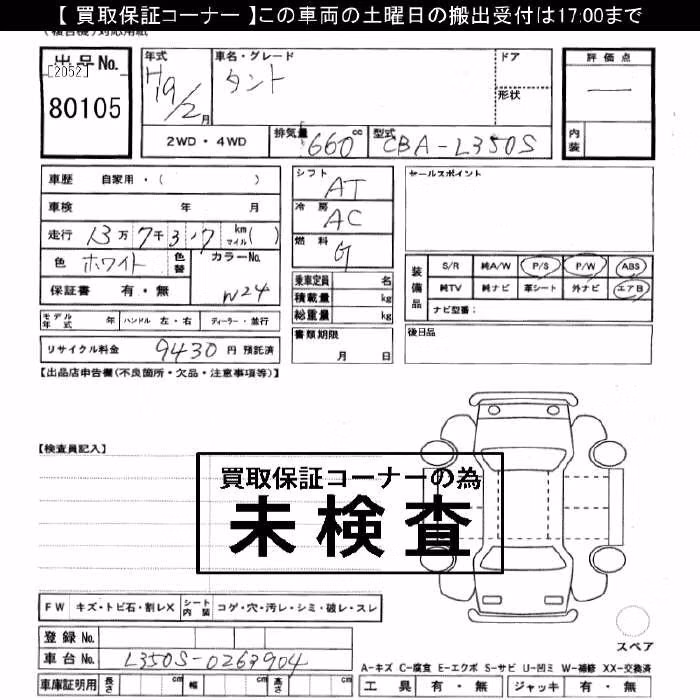 【 買取保証コーナー 】この車両の土曜日の搬出受付は17:00まで
出品No.
[2052]
80105
年式
H19/2月
車名・グレード
タント
ドア
形状
評価点
—
内装
2WD・4WD
排気量 660 cc
型式 CBA-L350S
車歴 自家用・( )
車検 年 月
走行 13万7千3.7 km マイル ( )
色 ホワイト
色替
カラーNo.
W24
保証書 有・無
シフト
AT
冷房
AC
燃料
G
乗車定員 名
積載量 kg
総重量 kg
セールスポイント
装備品
S/R 純A/W P/S P/W ABS
純TV 純ナビ 革シート 外ナビ エアB
ナビ型番:
モデル年式 年
ハンドル 左・右
ディーラー・並行
書類期限
月 日
後日品
リサイクル料金 9430 円 預託済
【出品店申告欄(不良箇所・欠品・注意事項等)】
【検査員記入】
買取保証コーナーの為
未検査
FW キズ・トビ石・割レX
シート内装 コゲ・穴・汚レ・シミ・破レ・スレ
登録No.
車台No. L350S-0263904
車庫証明用 長さ cm 幅 cm 高さ cm
スペア
A-キズ C-腐食 E-エクボ S-サビ U-凹ミ W-補修 XX-交換済
工具 有・無 ジャッキ 有・無